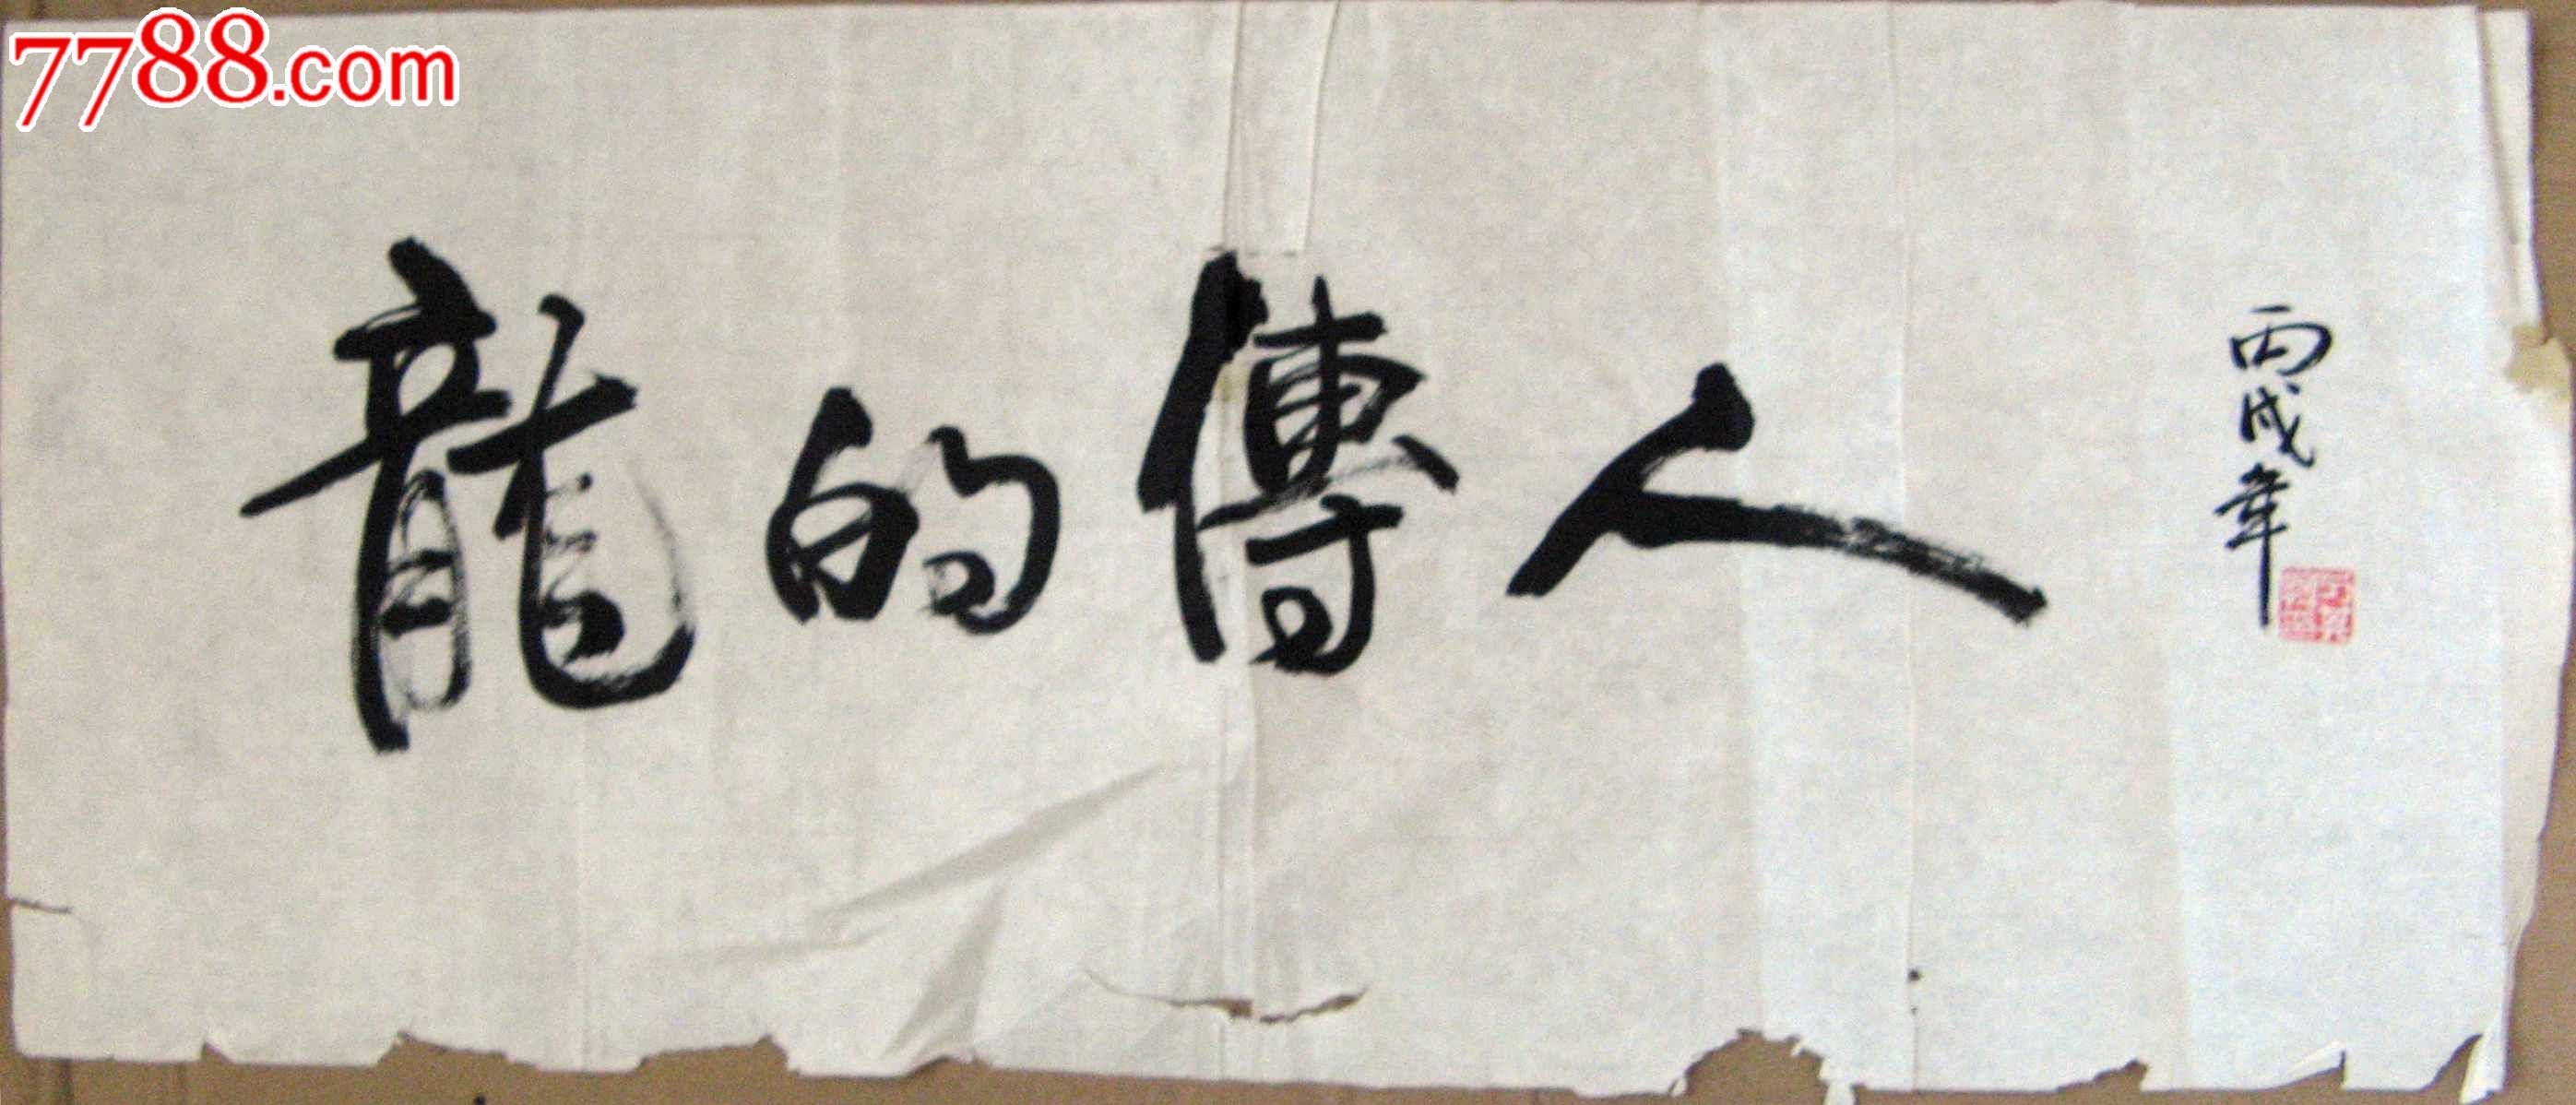 7788.com
龍的傳人
丙戌年